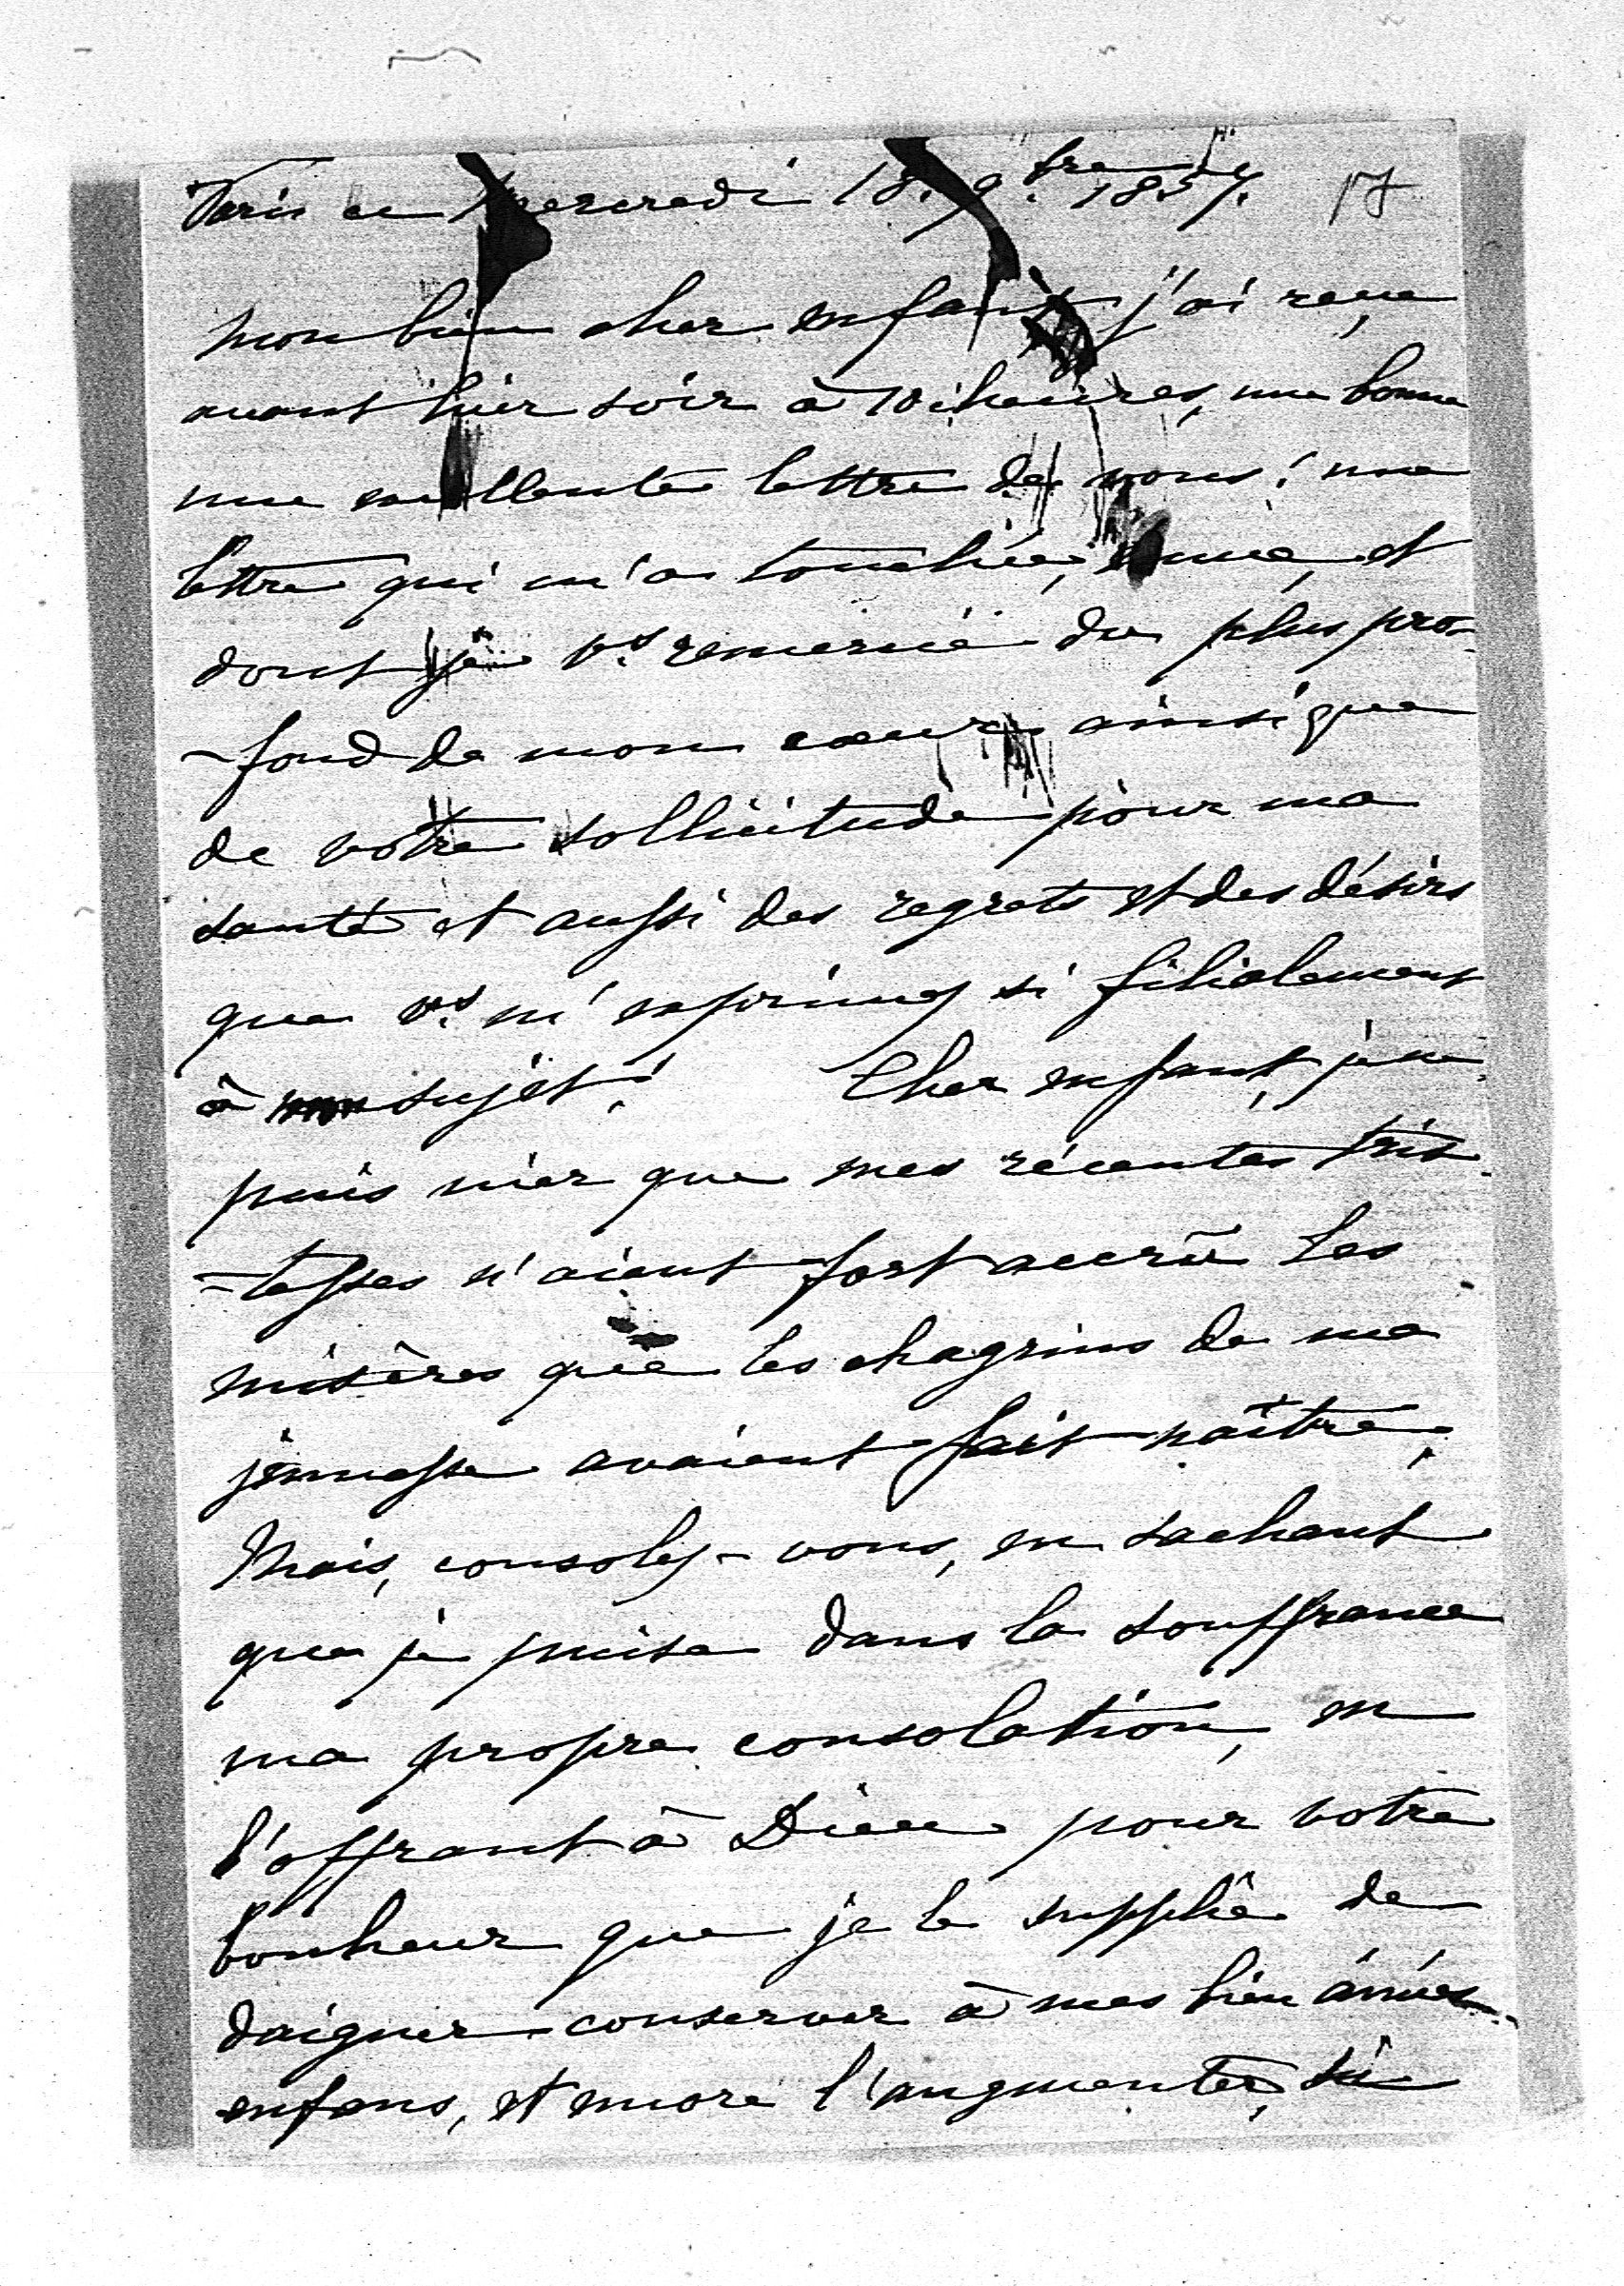 Paris ce Mercredi 18. 9.bre 1857. 17
mon bien cher enfant j'ai reçu
avant hier soir à 10 heures, une bonne
une excellente lettre de vous! une
lettre qui m'a touchée, émue, et
dont je vs. remercie du plus pro-
-fond de mon cœur ainsi que
de votre sollicitude pour ma
santé et aussi des regrets et des désirs
que vs. m'exprimez si filialement
à mon sujet! Cher enfant, je ne
puis nier que mes récentes tris-
-tesses n'aient fort accrû les
misères que les chagrins de ma
jeunesse avaient fait naître,
Mais, consolez-vous, en sachant
que je puise dans la souffrance
ma propre consolation, en
l'offrant à Dieu pour votre
bonheur que je le supplie de
daigner conserver à mes bien aimés
enfans, et encore l'augmenter, si